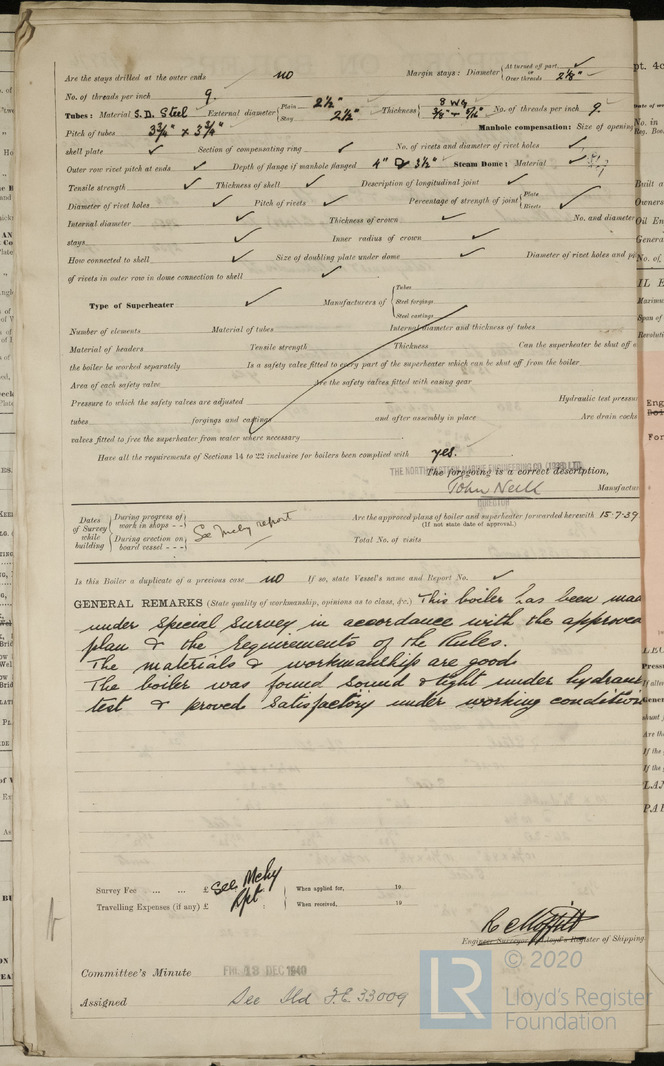 Are the stays drilled at the outer ends no Margin stays: Diameter { At turned off part, ✓ or Over threads 2 1/8"
No. of threads per inch 9.
Tubes: Material S.D. Steel External diameter { Plain 2 1/2" Stay 2 1/2" Thickness { 8 WG 3/8" + 5/16" No. of threads per inch 9.
Pitch of tubes 3 3/4" x 3 3/4" Manhole compensation: Size of opening
shell plate ✓ Section of compensating ring ✓ No. of rivets and diameter of rivet holes ✓
Outer row rivet pitch at ends ✓ Depth of flange if manhole flanged 4" & 3 1/2" Steam Dome: Material ✓
Tensile strength ✓ Thickness of shell ✓ Description of longitudinal joint ✓
Diameter of rivet holes ✓ Pitch of rivets ✓ Percentage of strength of joint { Plate Rivets ✓
Internal diameter ✓ Thickness of crown ✓ No. and diameter
stays ✓ Inner radius of crown ✓
How connected to shell ✓ Size of doubling plate under dome ✓ Diameter of rivet holes and
of rivets in outer row in dome connection to shell ✓
Type of Superheater ✓ Manufacturers of { Tubes Steel forgings Steel castings
Number of elements Material of tubes Internal diameter and thickness of tubes
Material of headers Tensile strength Thickness Can the superheater be shut off
the boiler be worked separately Is a safety valve fitted to every part of the superheater which can be shut off from the boiler
Area of each safety valve Are the safety valves fitted with easing gear
Pressure to which the safety valves are adjusted Hydraulic test pressure
tubes forgings and castings and after assembly in place Are drain cocks
valves fitted to free the superheater from water where necessary
Have all the requirements of Sections 14 to 22 inclusive for boilers been complied with yes.
THE NORTH EASTERN MARINE ENGINEERING CO. (1938) LTD.
The foregoing is a correct description,
John Neill Manufactur
DIRECTOR
Dates of Survey while building { During progress of work in shops - - } { During erection on board vessel - - - } See Mchy report
Are the approved plans of boiler and superheater forwarded herewith 15.7.39
(If not state date of approval.)
Total No. of visits
Is this Boiler a duplicate of a previous case no If so, state Vessel's name and Report No. ✓
GENERAL REMARKS (State quality of workmanship, opinions as to class, &c.) This boiler has been mad
under special survey in accordance with the approved
plan & the requirements of the Rules.
The materials & workmanship are good.
The boiler was found sound & tight under hydraulic
test & proved satisfactory under working conditions
Survey Fee ... ... £ See Mchy Rpt When applied for, 19
Travelling Expenses (if any) £ When received, 19
R C Moffitt
Engineer Surveyor to Lloyd's Register of Shipping
Committee's Minute FRI. 13 DEC 1940
Assigned See Sld F.E. 33009
LR © 2020
Lloyd's Register
Foundation